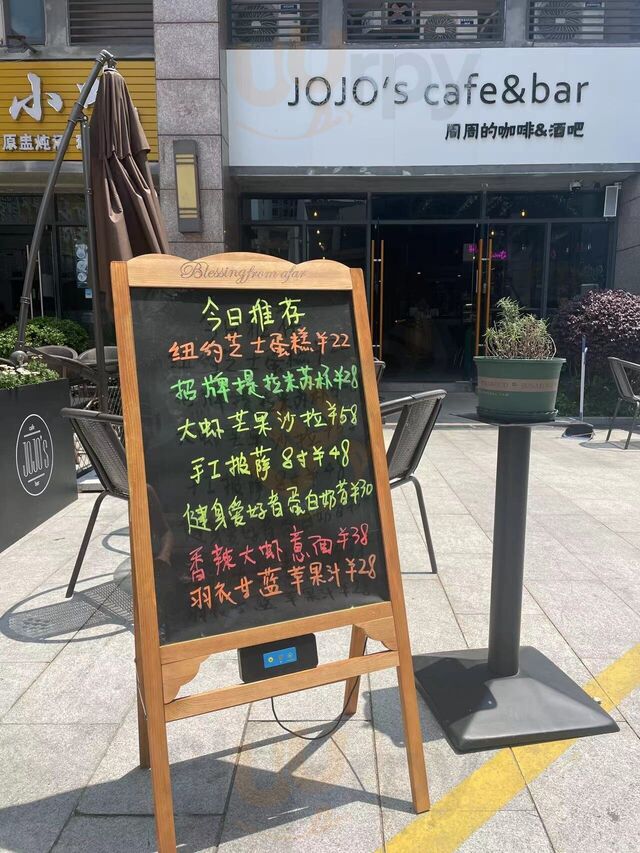 小
原盅炖
JOJO's cafe&bar
周周的咖啡&酒吧
Blessing from afar
今日推荐
纽约芝士蛋糕¥22
招牌提拉米苏杯¥28
大虾芒果沙拉¥58
手工披萨 8寸¥48
健身爱好者蛋白奶昔¥30
香辣大虾意面¥38
羽衣甘蓝苹果汁¥28
cafe
JOJO's
bar